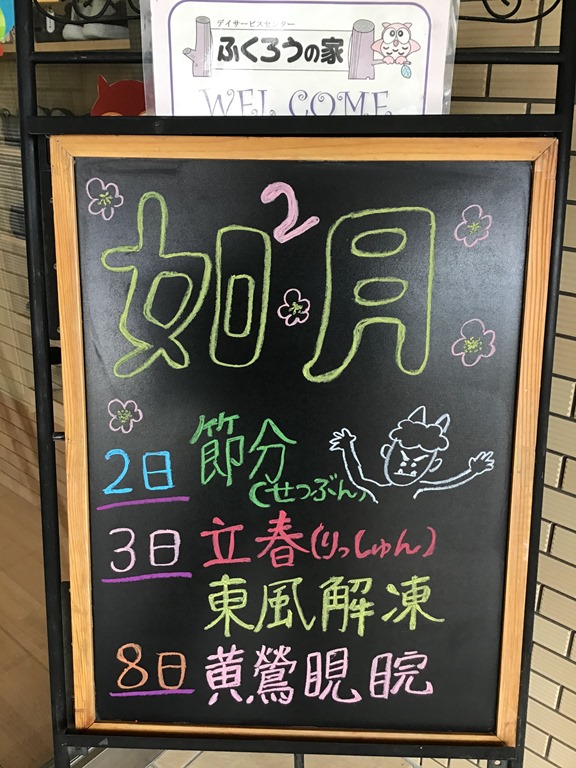 デイサービスセンター
ふくろうの家
WELCOME
2
如月
2日 節分
(せつぶん)
3日 立春(りっしゅん)
東風解凍
8日 黄鶯睍睆